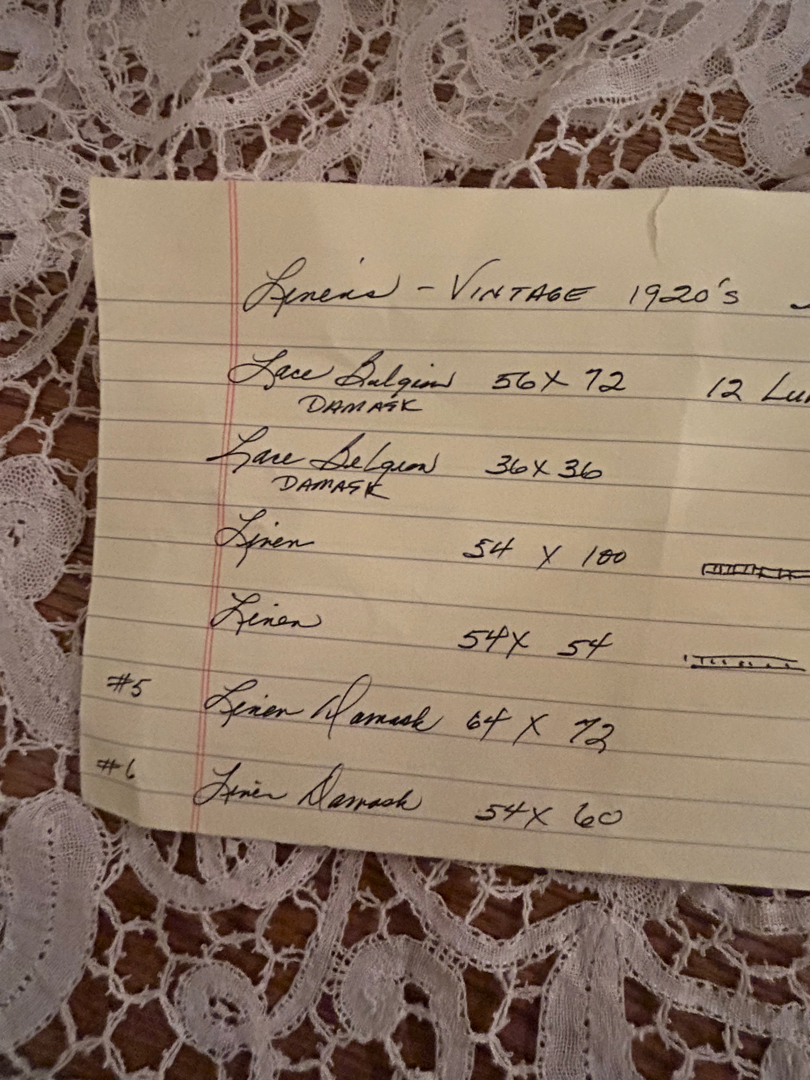 Linens - VINTAGE 1920's
Lace Belgian 56 X 72 12 Lun
DAMASK
Lace Belgian 36 X 36
DAMASK
Linen 54 X 100
Linen 54 X 54
#5 Linen Damask 64 X 72
#6 Linen Damask 54 X 60